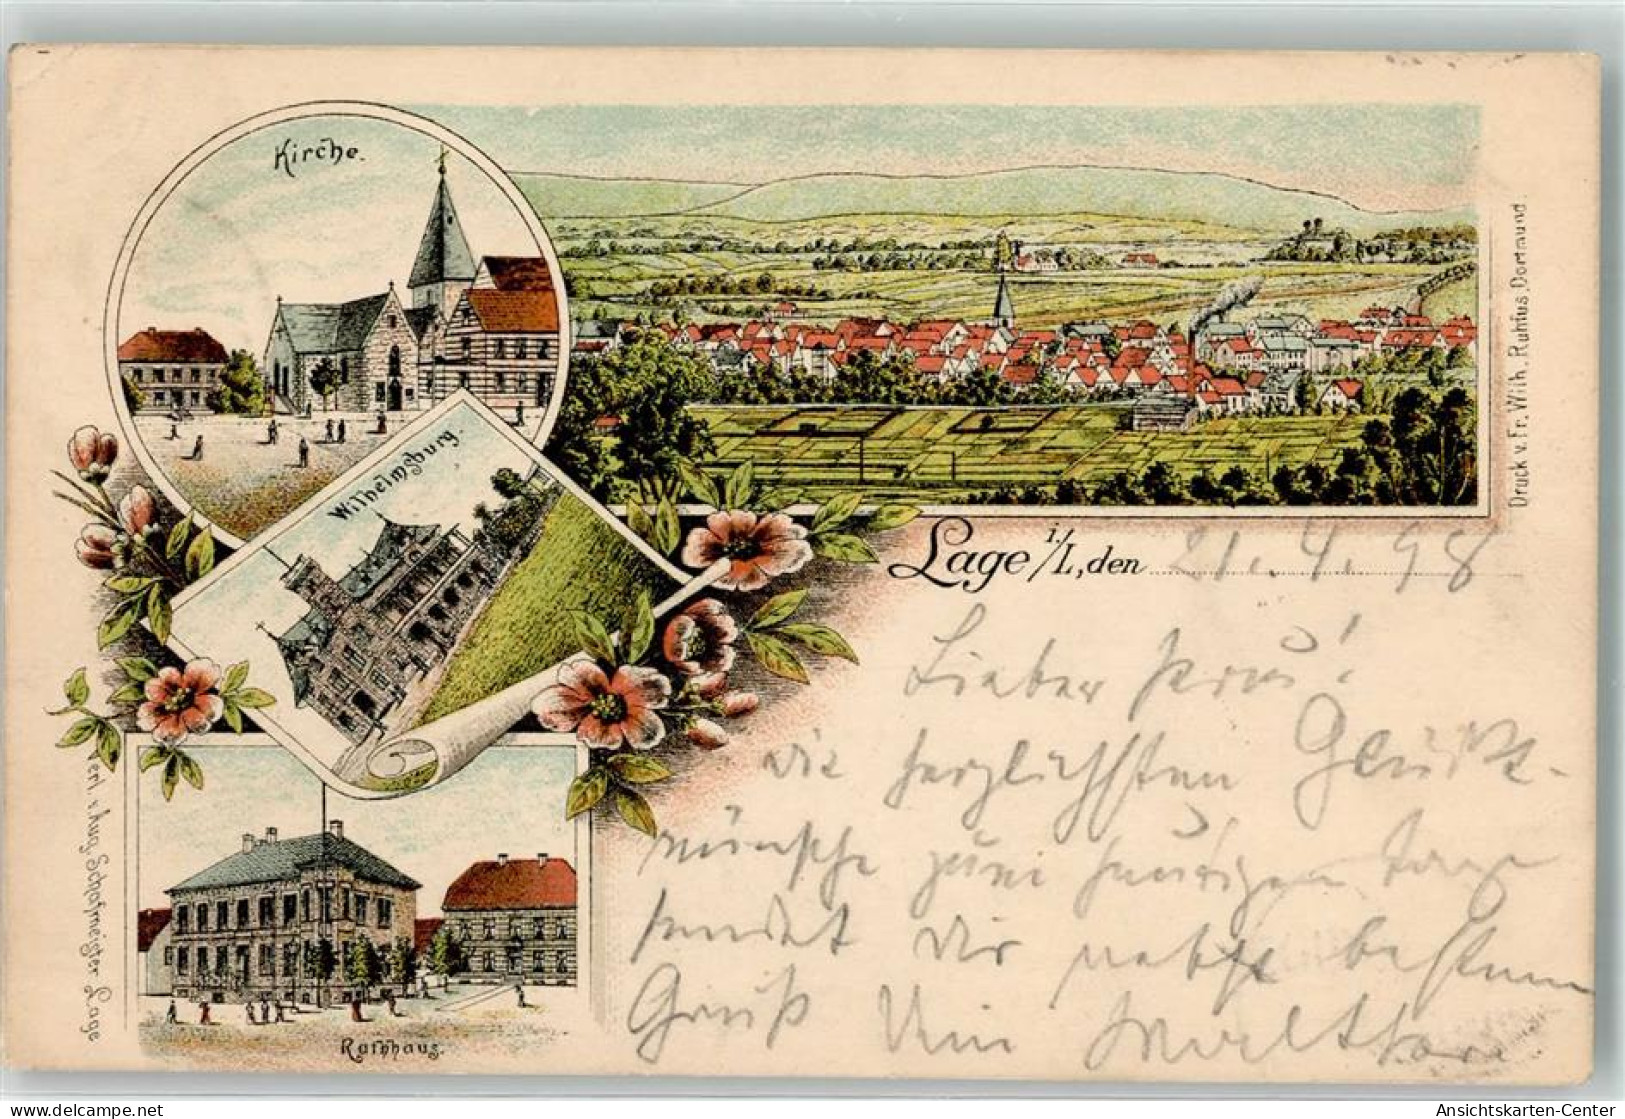 Kirche.
Wilhelmsburg.
Rathhaus.
Druck v. Fr. Wilh. Ruhfus, Dortmund
Verl. v. Aug. Schafmeister Lage
Lage i./L., den 21.4.98
Lieber
die herzlichsten Glück-
wünsche zum heutigen Tage
sendet Dir nebst bestem
Gruß Dein
www.delcampe.net
Ansichtskarten-Center